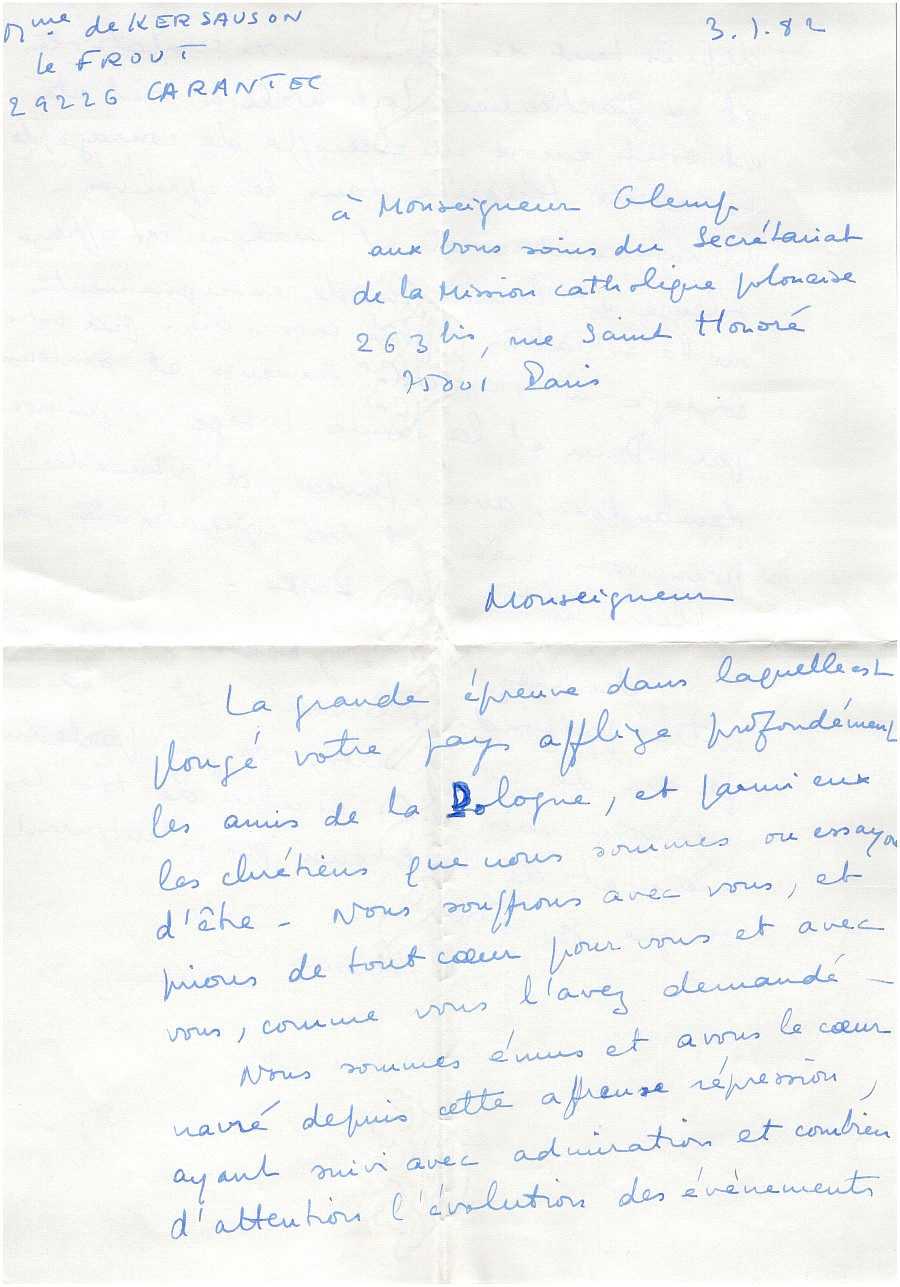 Mme de KERSAUSON
le FROUT
29226 CARANTEC
3.1.82
à Monseigneur Glemp
aux bons soins du Secrétariat
de la Mission catholique polonaise
263 bis, rue Saint Honoré
75001 Paris
Monseigneur
La grande épreuve dans laquelle est
plongé votre pays afflige profondément
les amis de la Pologne, et parmi eux
les chrétiens que nous sommes ou essayons
d'être - Nous souffrons avec vous, et
prions de tout cœur pour vous et avec
vous, comme vous l'avez demandé -
Nous sommes émus et avons le cœur
navré depuis cette affreuse répression,
ayant suivi avec admiration et combien
d'attention l'évolution des événements